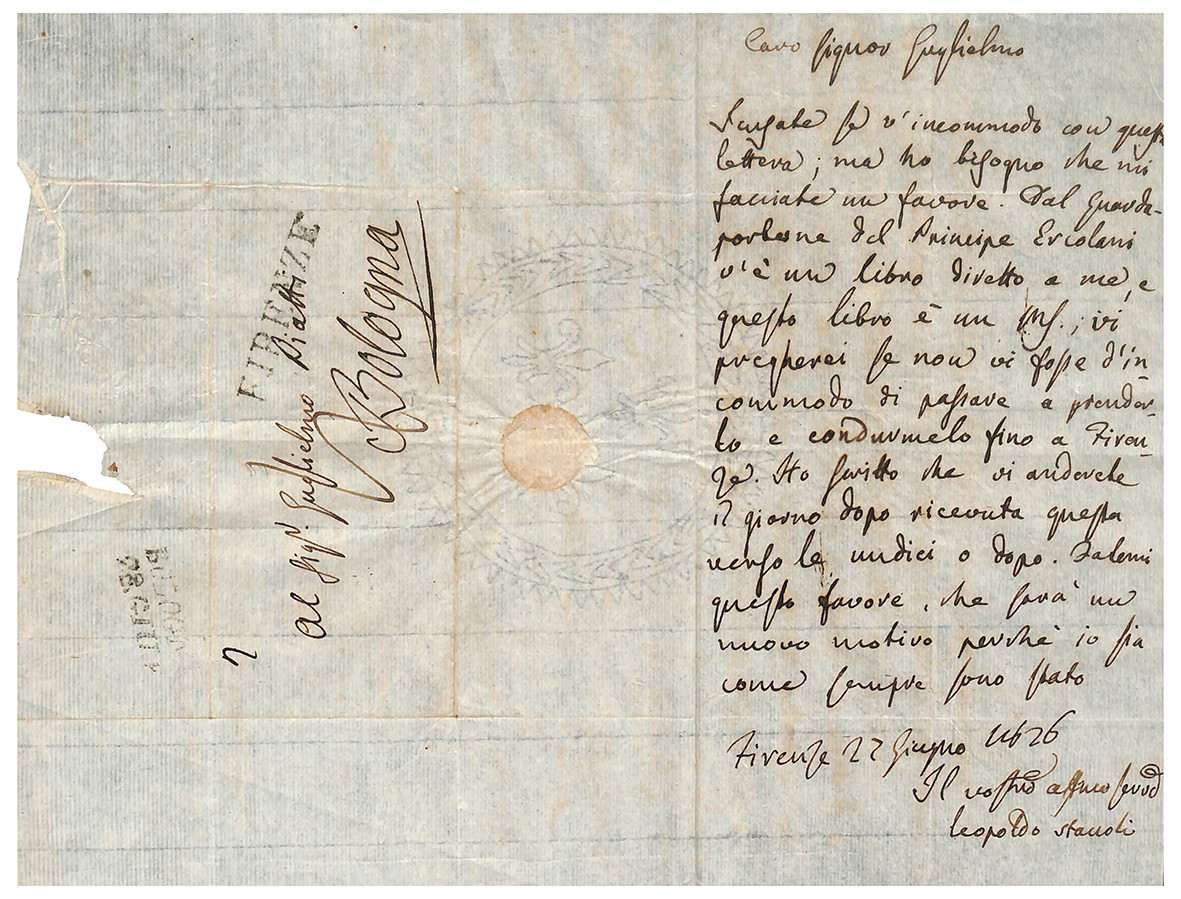 Caro Signor Guglielmo
Scusate se v'incommodo con questa
lettera; ma ho bisogno che mi
facciate un favore. Dal Guarda-
portone del Principe Ercolani
v'è un libro diretto a me, e
questo libro è un MS.; vi
pregherei se non vi fosse d'in
commodo di passare a prender-
lo e condurmelo fino a Firen-
ze. Ho scritto che vi anderete
il giorno dopo ricevuta questa
verso le undici o dopo. Fatemi
questo favore, che sarà un
nuovo motivo perchè io sia
come sempre sono stato
Firenze 27 Giugno
Il vostro affmo
Leopoldo
FIRENZE
Al Sigr. Guglielmo Piatti
Bologna